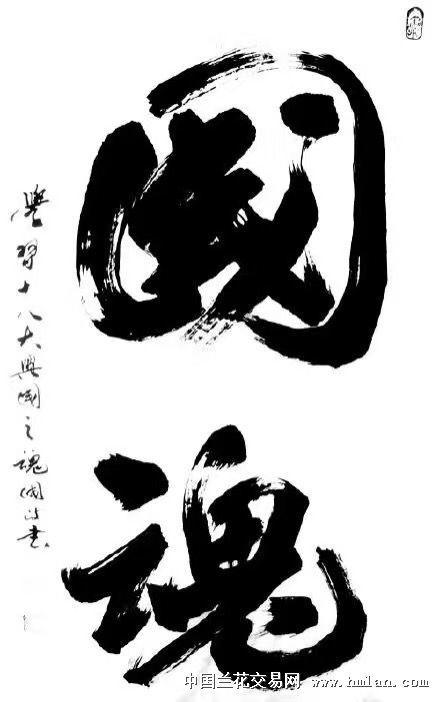 國魂
學習十八大興國之魂國山書
中国兰花交易网 www.hmlan.com